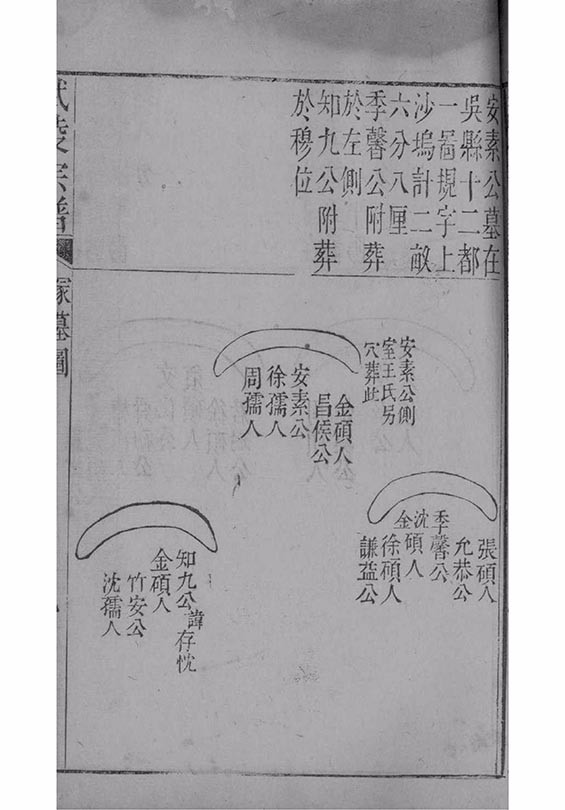 安素公墓在
吳縣十二都
一啚規字上
沙塢計二畝
六分八厘
季馨公附葬
於左側
知九公附葬
於穆位
安素公側
室王氏另
穴葬此
金碩人
昌侯公
安素公
徐孺人
周孺人
張碩人
允恭公
季馨公
沈碩人
金
徐碩人
謙益公
知九公諱存忱
金碩人
竹安公
沈孺人
宗譜
塚墓圖